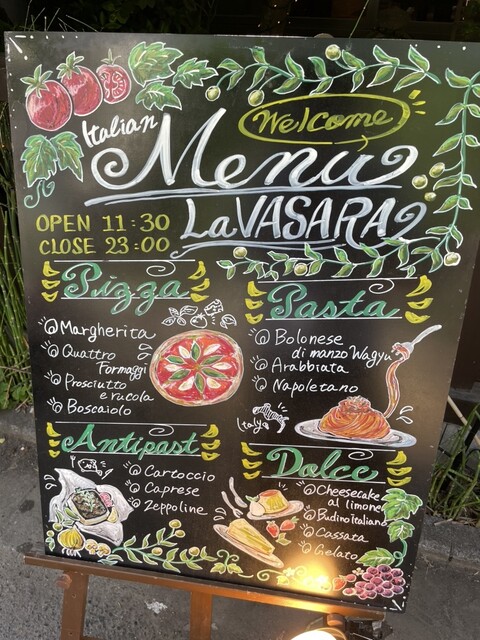 Italian
Welcome
Menu
La VASARA
OPEN 11:30
CLOSE 23:00
Pizza
@Margherita
@Quattro
Formaggi
@Prosciutto
e rucola
@Boscaiolo
Pasta
@Bolonese
di manzo Wagyu
@Arabbiata
@Napoletano
Italya
Antipast
@Cartoccio
@Caprese
@Zeppoline
Dolce
@Cheesecake
al limone
@Budino Italiano
@Cassata
@Gelato